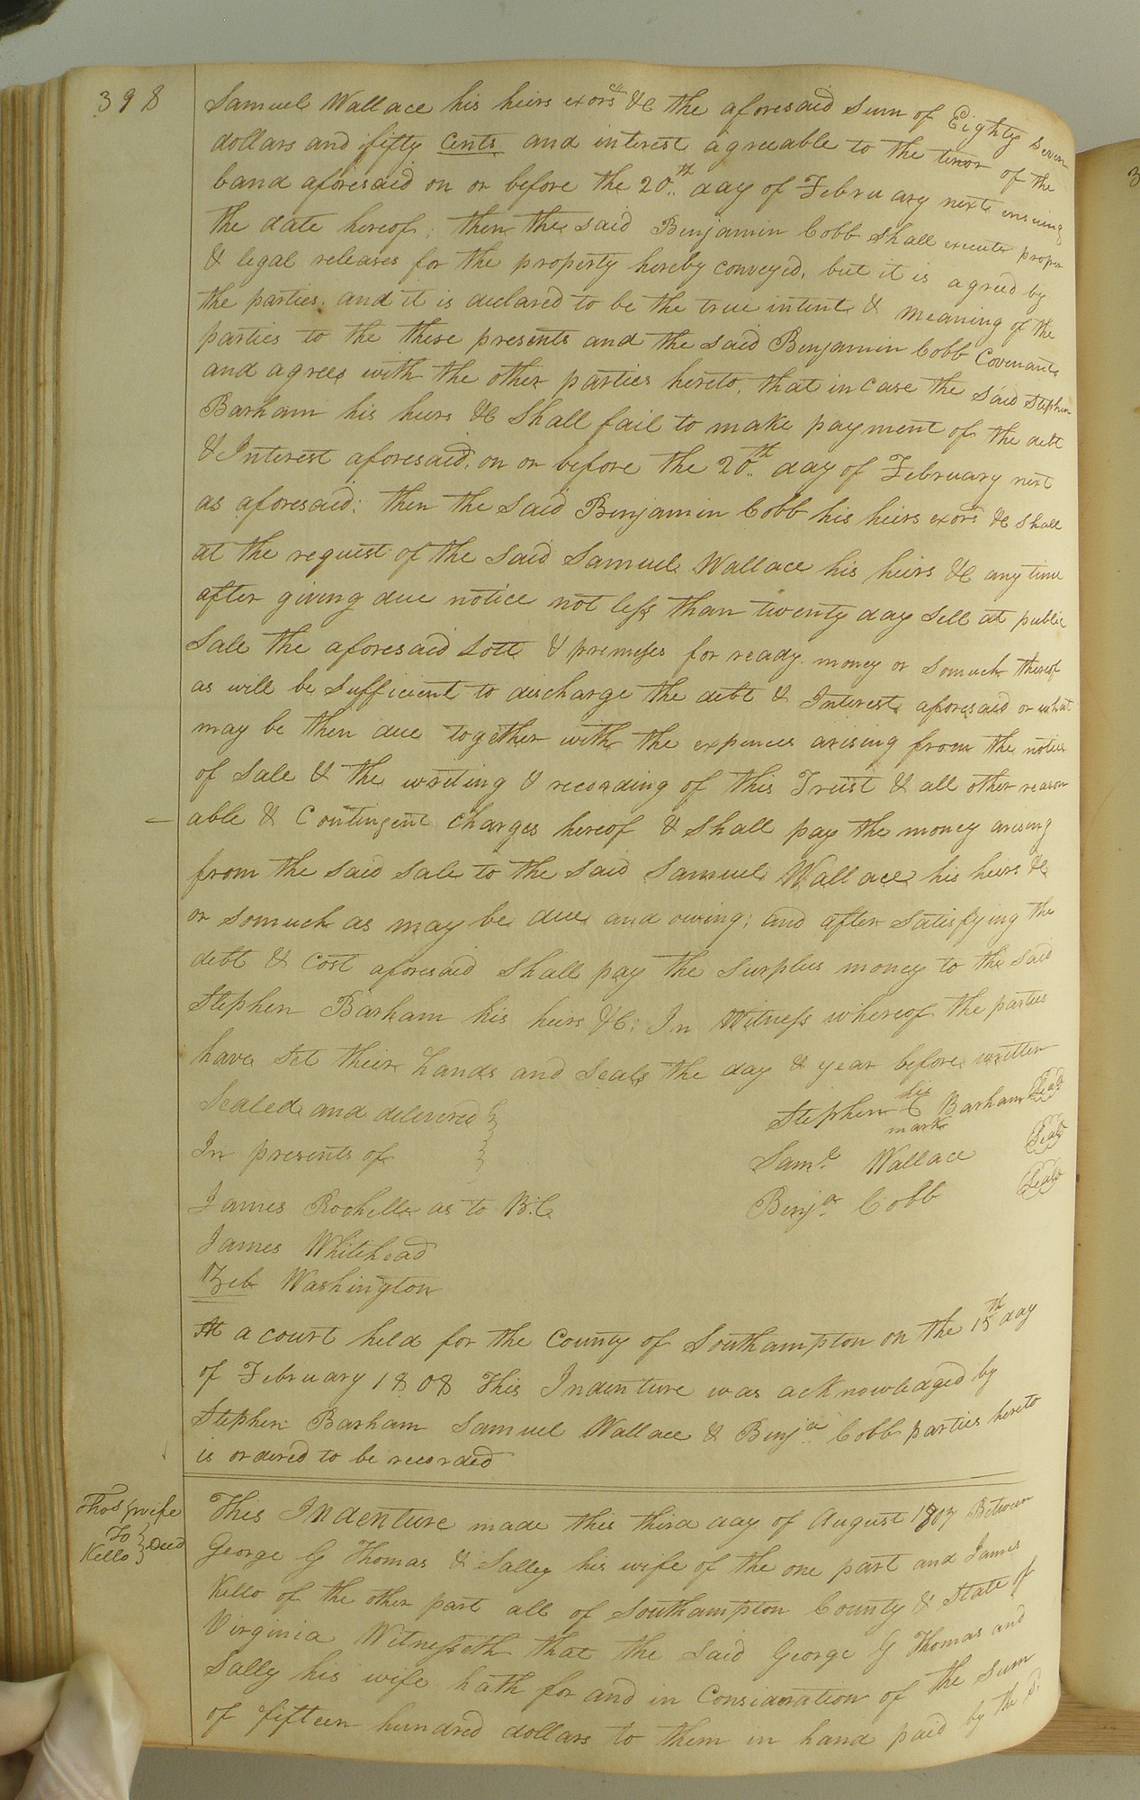 398
Samuel Wallace his heirs exors &C the aforesaid Sum of Eighty Seven
dollars and fifty Cents and interest agreeable to the tenor of the
band aforesaid on or before the 20th day of February next ensuing
the date hereof; then the said Benjamin Cobb shall execute proper
& legal releases for the property hereby conveyed, but it is agreed by
the parties, and it is declared to be the true intent & meaning of the
parties to the these presents and the said Benjamin Cobb Covenants
and agrees with the other parties hereto, that in case the said Stephen
Barham his heirs &C Shall fail to make payment of the debt
& Interest aforesaid, on or before the 20th day of February next
as aforesaid: then the said Benjamin Cobb his heirs exors &C shall
at the request of the said Samuel Wallace his heirs &C any time
after giving due notice not less than twenty day sell at public
Sale the aforesaid Lott & premises for ready money or somuch thereof
as will be sufficient to discharge the debt & Interest aforesaid or what
may be then due together with the expences arising from the notice
of sale & the writing & recording of this Trust & all other reason
able & Contingent Charges hereof & shall pay the money arising
from the said sale to the said Samuel Wallace his heirs &c
or somuch as may be due and owing; and after satisfying the
debt & cost aforesaid shall pay the surplus money to the said
Stephen Barham his heirs &C: In Witness whereof the parties
have set their hands and seals the day & year before written
Sealed and delivered
In presents of
James Rochelle as to B.C.
James Whitehead
Zeb Washington
Stephen his mark Barham Seal
Saml. Wallace Seal
Benja. Cobb Seal
At a court held for the County of Southampton on the 15th day
of February 1808 This Indenture was acknowledged by
Stephen Barham Samuel Wallace & Benja. Cobb parties hereto
is ordered to be recorded
Thos & wife
To
Kello
Deed
This Indenture made this third day of August 1807 Between
George G Thomas & Salley his wife of the one part and James
Kello of the other part all of Southampton County & State of
Virginia Witnesseth that the said George G Thomas and
Sally his wife hath for and in Consideration of the Sum
of fifteen hundred dollars to them in hand paid by the sd